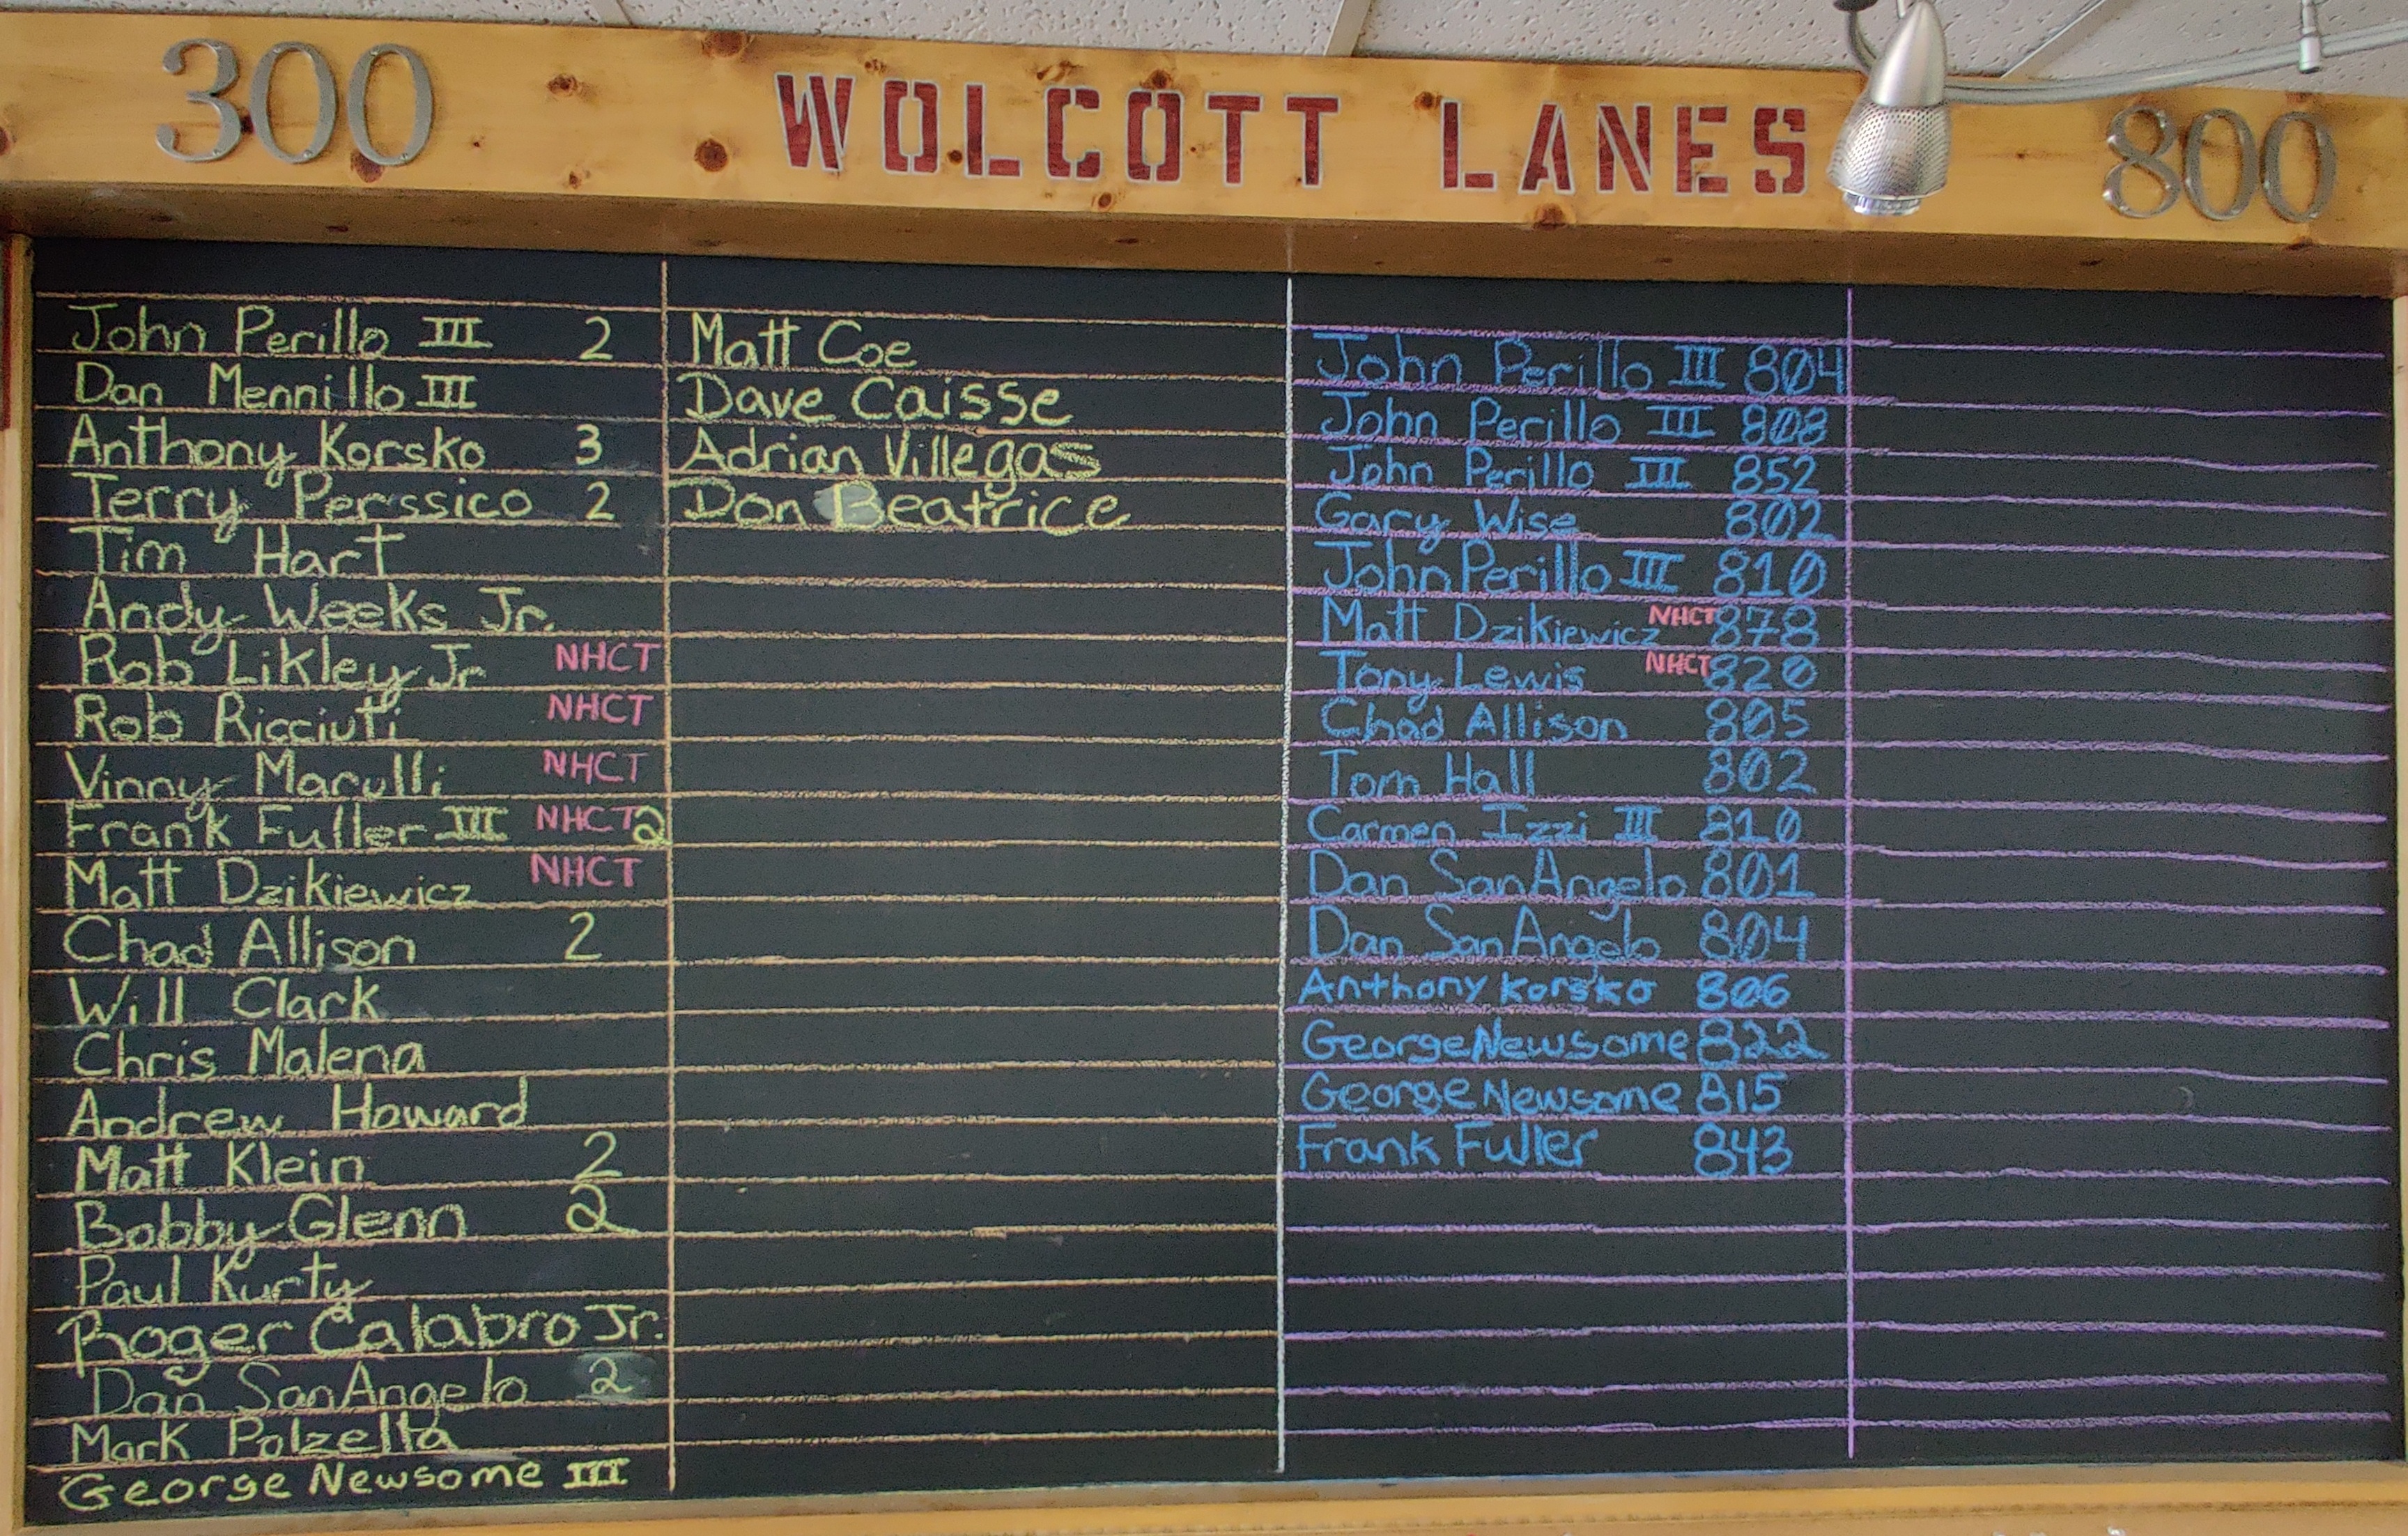 300 WOLCOTT LANES 800
John Perillo III 2
Dan Mennillo III
Anthony Korsko 3
Terry Perssico 2
Tim Hart
Andy Weeks Jr.
Rob Likley Jr NHCT
Rob Ricciuti NHCT
Vinny Marulli NHCT
Frank Fuller III NHCT 2
Matt Dzikiewicz NHCT
Chad Allison 2
Will Clark
Chris Malena
Andrew Howard
Matt Klein 2
Bobby Glenn 2
Paul Kurty
Roger Calabro Jr.
Dan SanAngelo 2
Mark Polzella
George Newsome III
Matt Coe
Dave Caisse
Adrian Villegas
Don Beatrice
John Perillo III 804
John Perillo III 808
John Perillo III 852
Gary Wise 802
John Perillo III 810
Matt Dzikiewicz NHCT 878
Tony Lewis NHCT 820
Chad Allison 805
Tom Hall 802
Carmen Izzi III 810
Dan SanAngelo 801
Dan SanAngelo 804
Anthony Korsko 806
George Newsome 822
George Newsome 815
Frank Fuller 843